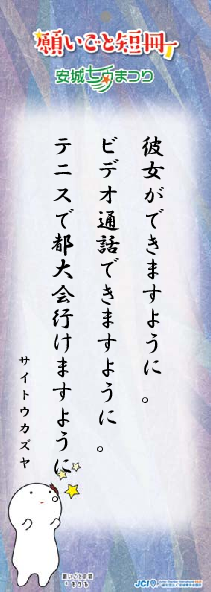 願いごと短冊
安城七夕まつり
彼女ができますように。
ビデオ通話できますように。
テニスで都大会行けますように
サイトウカズヤ
願いごと
JCI